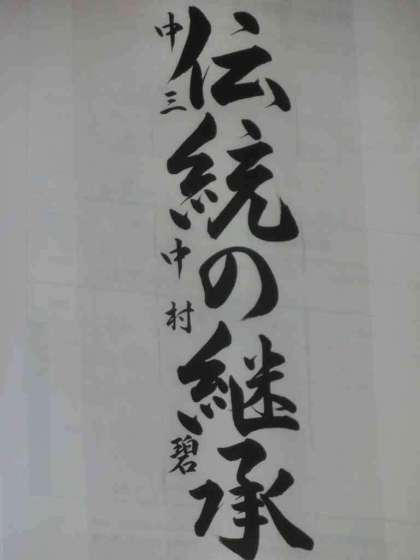 伝統の継承
中三 中村 碧